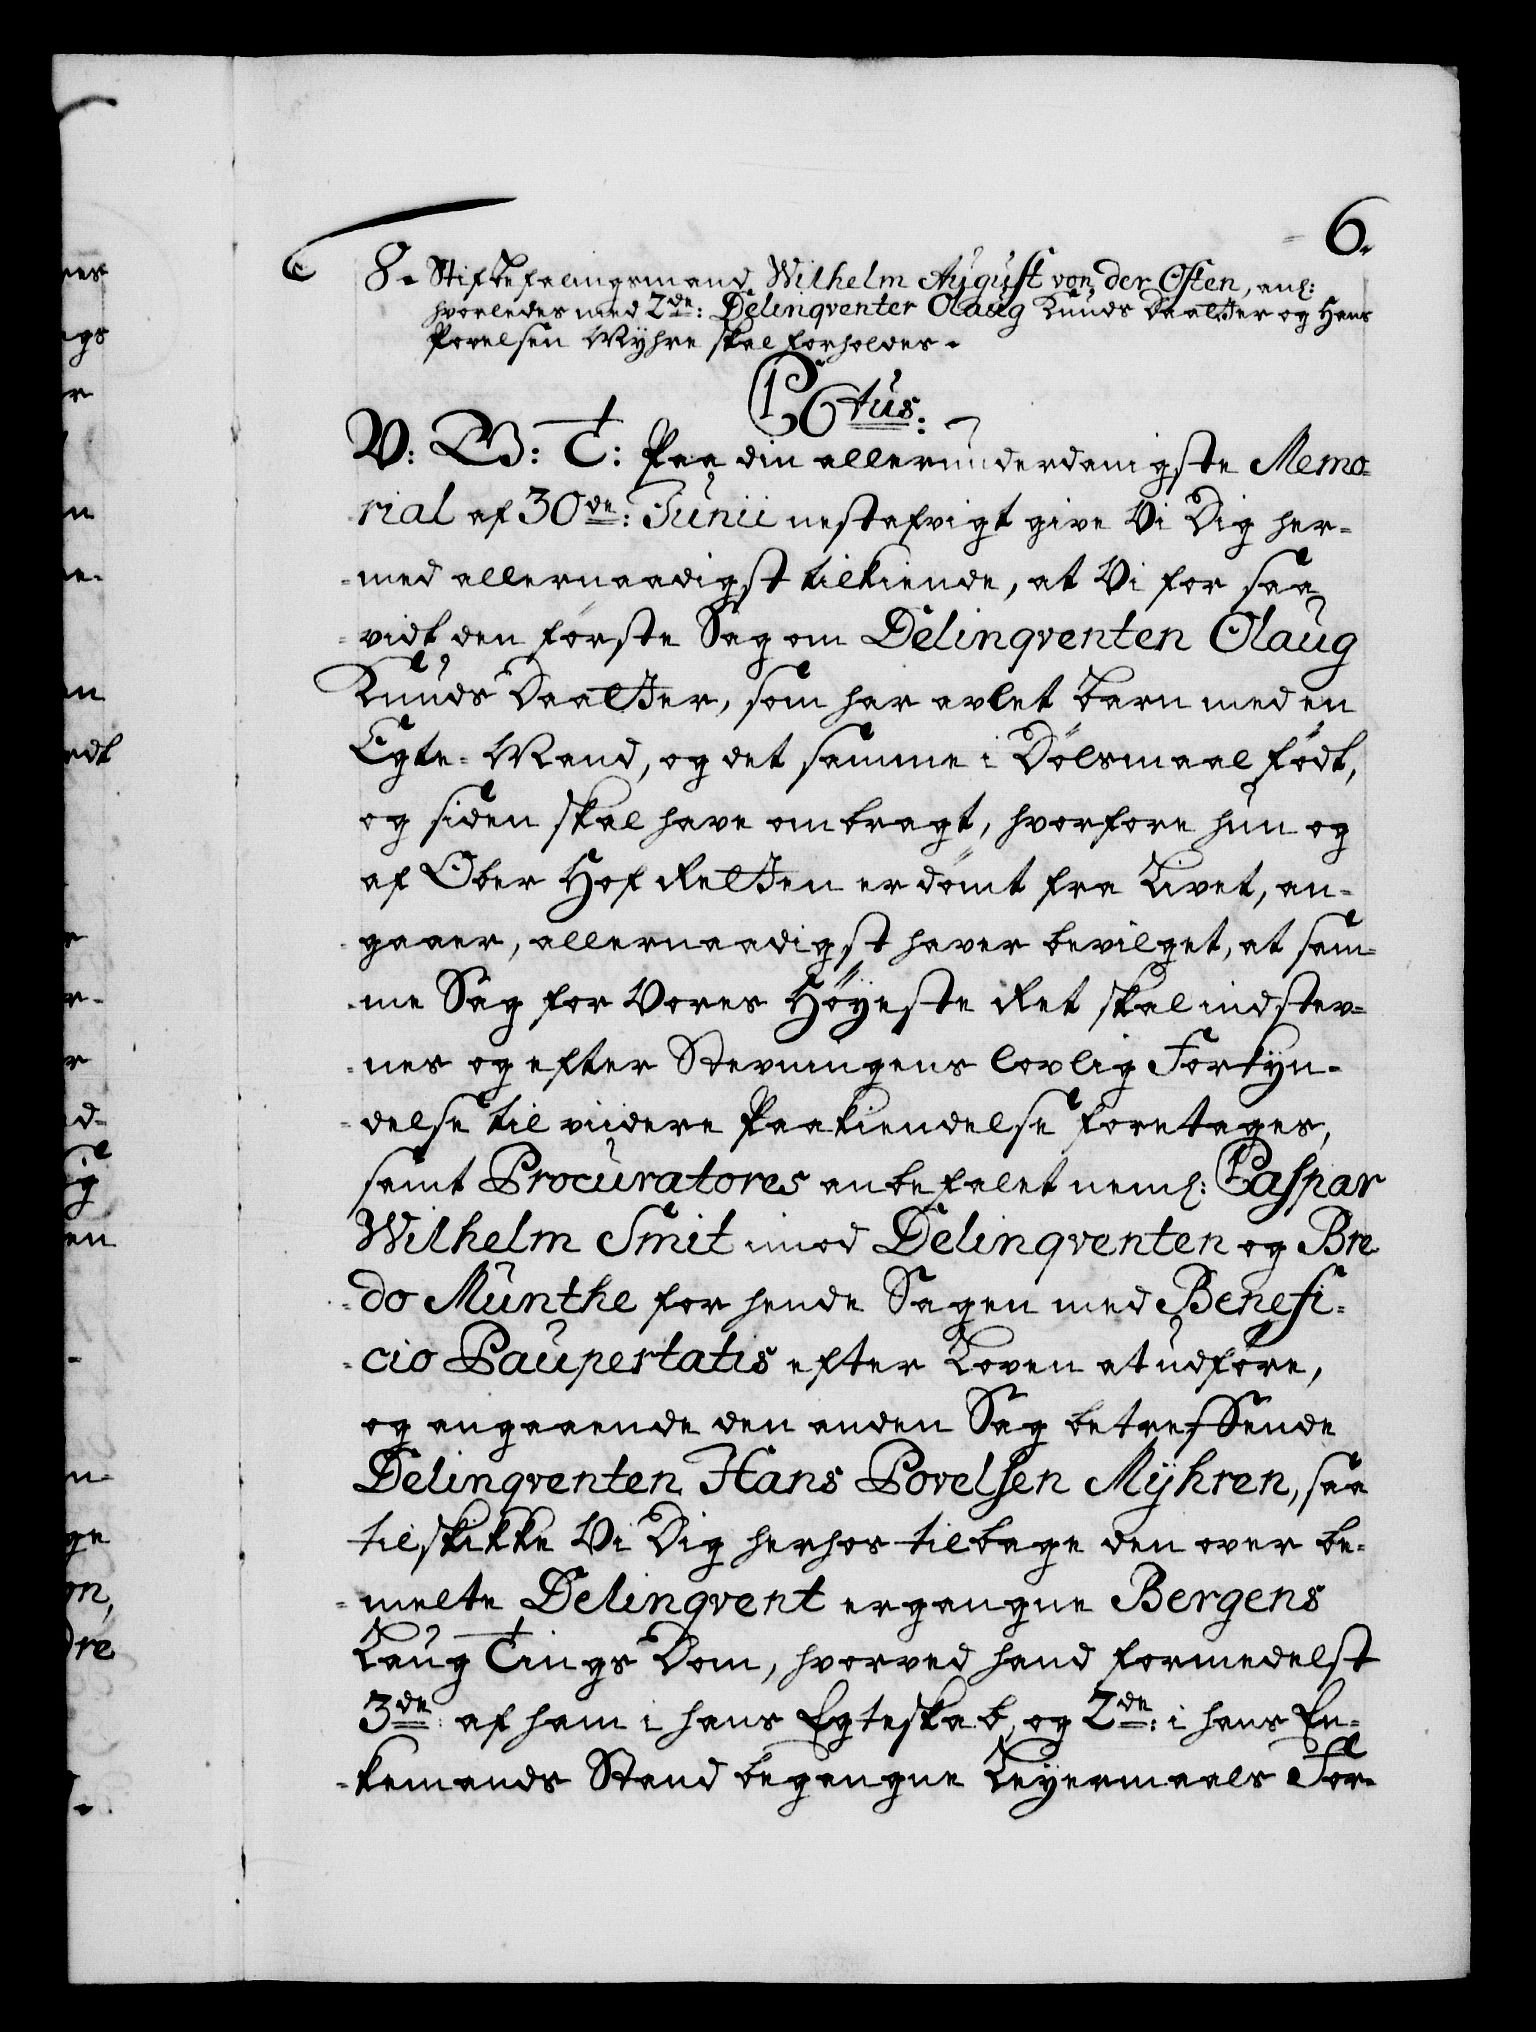 6.
8. Stiftbefalingsmand Wilhelm August von der Osten, anl:
hvorledes med 2de: Delinqventer Olaug Knuds Daatter og Hans
Povelsen Myhre skal forholdes.
C6tus:
V: G: T: Paa din allerunderdanigste Memo-
rial af 30de: Junii nestafvigt give Vi Dig her-
-med allernaadigst tilkiende, at Vi for saa
-vidt den første Sag om Delinqventen Olaug
Knuds Daatter, som har avlet barn med en
Egte-Mand, og det samme i Dølsmaal født,
og siden skal have ombragt, hvorfore hun og
af Ober Hof Retten er dømt fra Livet, an-
-gaaer, allernaadigst haver bevilget, at sam-
-me Sag for Vores Høyeste Ret skal indstev-
-nes og efter Stevningens lovlig Forkyn-
-delse til viidere Paakiendelse foretages,
samt Procuratores anbefalet neml: Caspar
Wilhelm Smit imod Delinqventen og Bre
-do Munthe for hende Sagen med Benefi-
-cio Paupertatis efter Loven at udføre,
og angaaende den anden Sag betreffende
Delinqventen Hans Povelsen Myhren, saa
tilskikke Vi Dig herhos tilbage den over be-
-melte Delinqvent ergangne Bergens
Laug Tings Dom, hvorved hand formedelst
3de: af ham i hans Egteskab, og 2de: i hans En-
-kemands Stand begangne Leyermaals For-